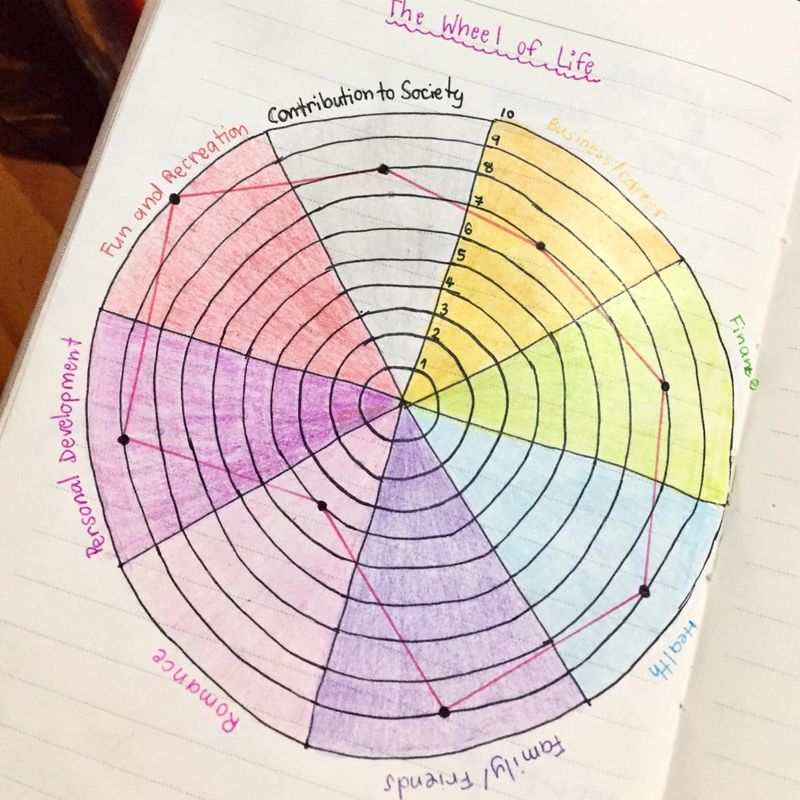 The Wheel of Life
Contribution to Society
10
9
8
7
6
5
4
3
2
1
Business/career
Finance
Health
Family/Friends
Romance
Personal Development
Fun and Recreation